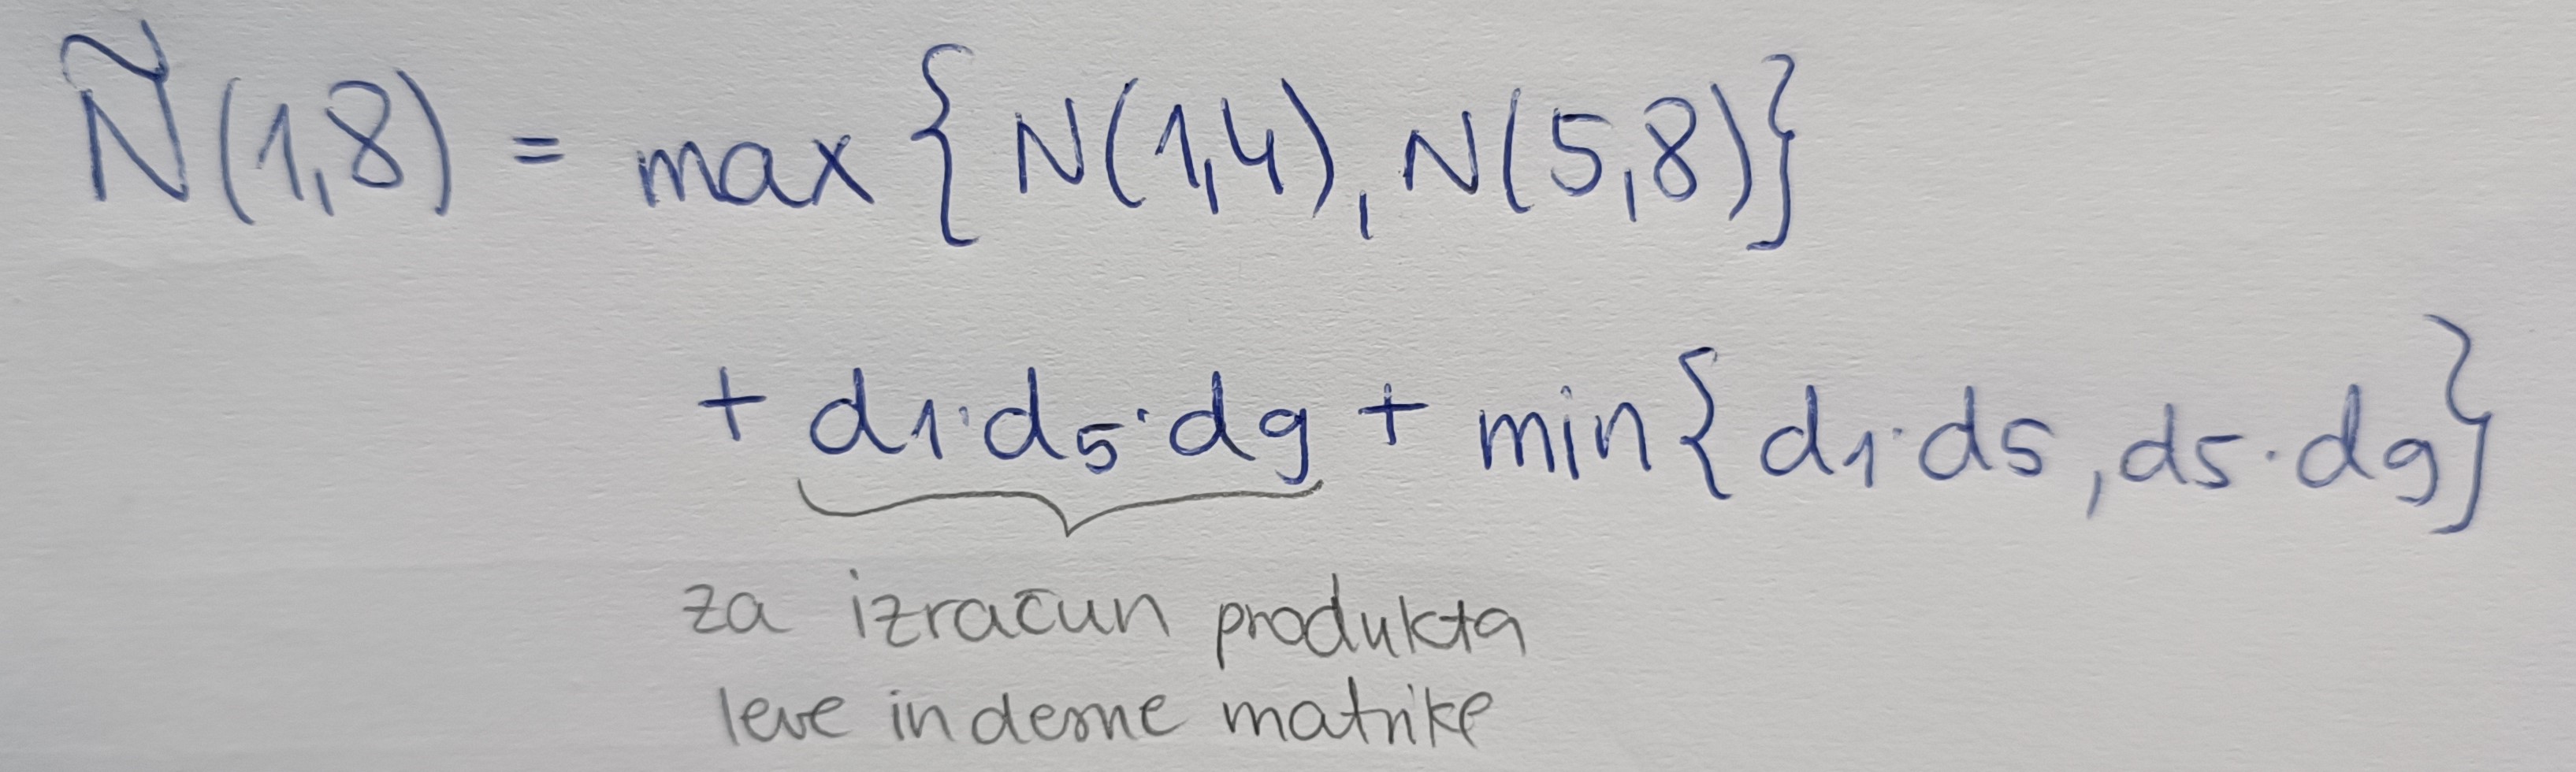 Ñ(1,8) = max { N(1,4), N(5,8)}
+ d1·d5·d9 + min{d1·d5, d5·d9}
za izračun produkta
leve in desne matrike